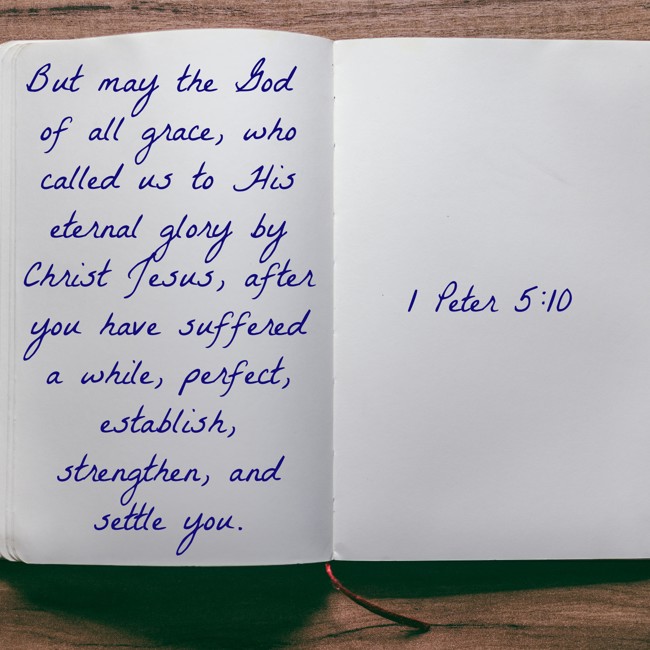 But may the God
of all grace, who
called us to His
eternal glory by
Christ Jesus, after
you have suffered
a while, perfect,
establish,
strengthen, and
settle you.
1 Peter 5:10